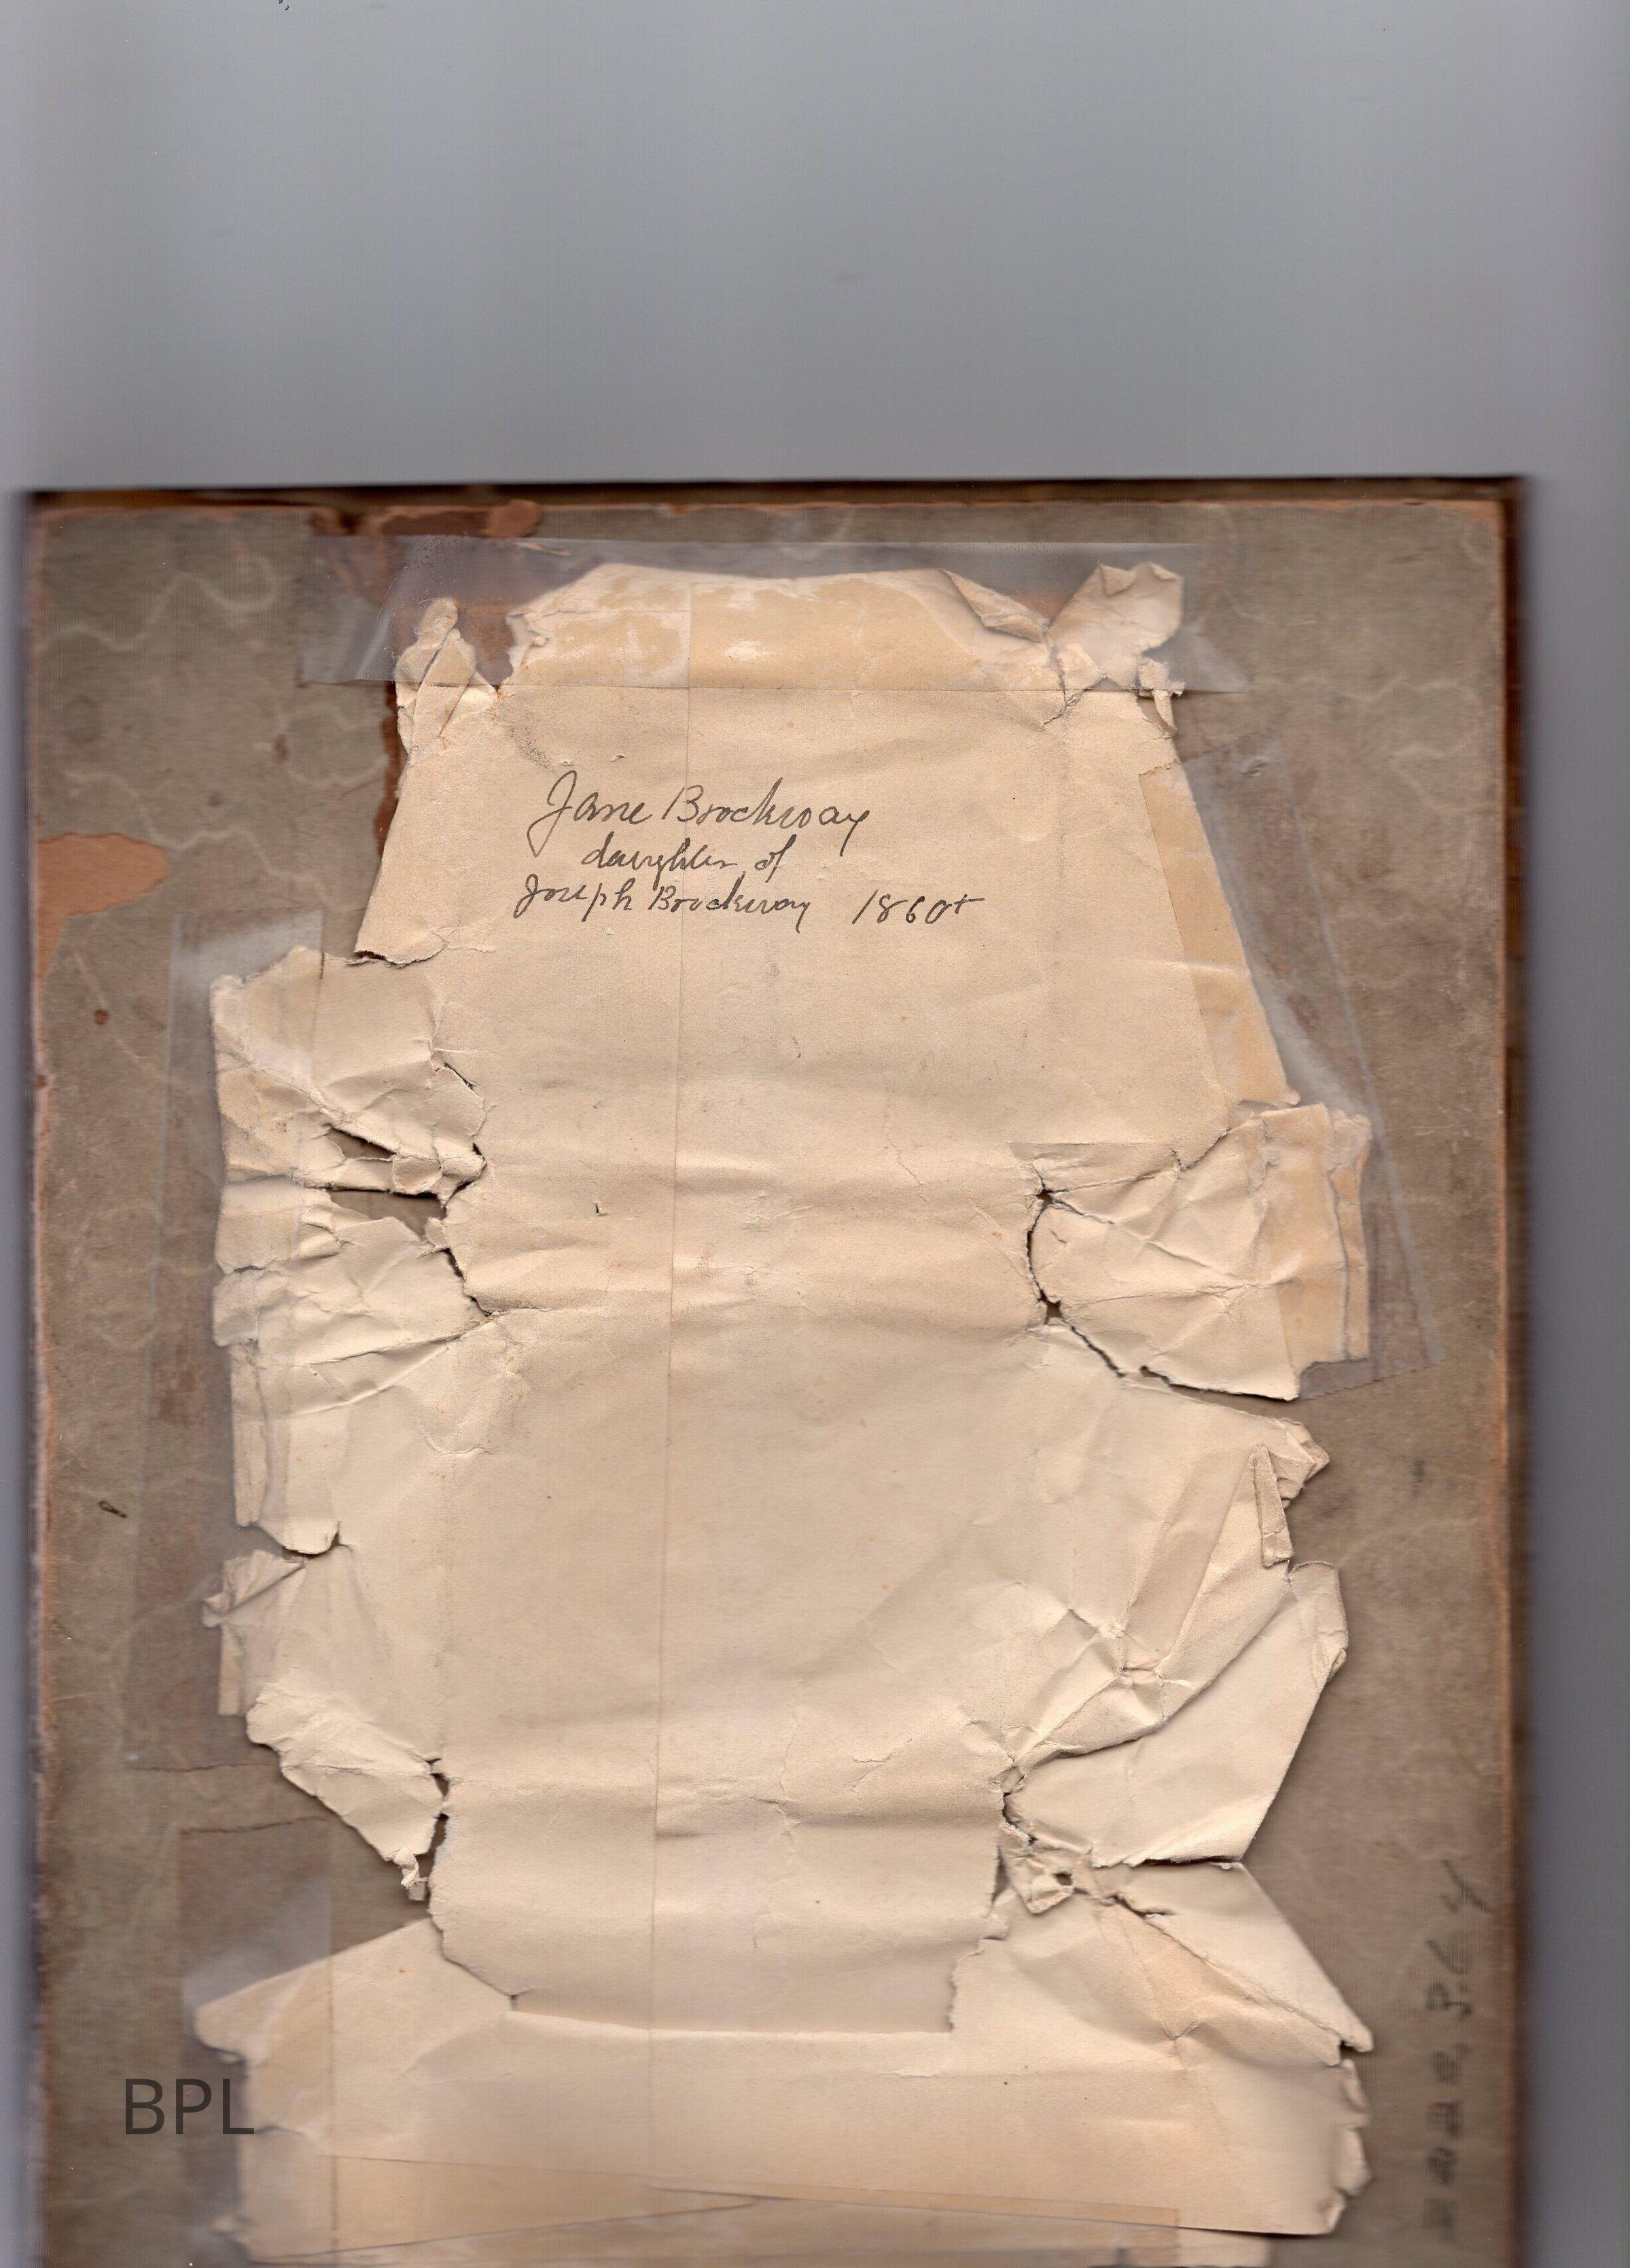 Jane Brockway
daughter of
Joseph Brockway 1860+
BPL